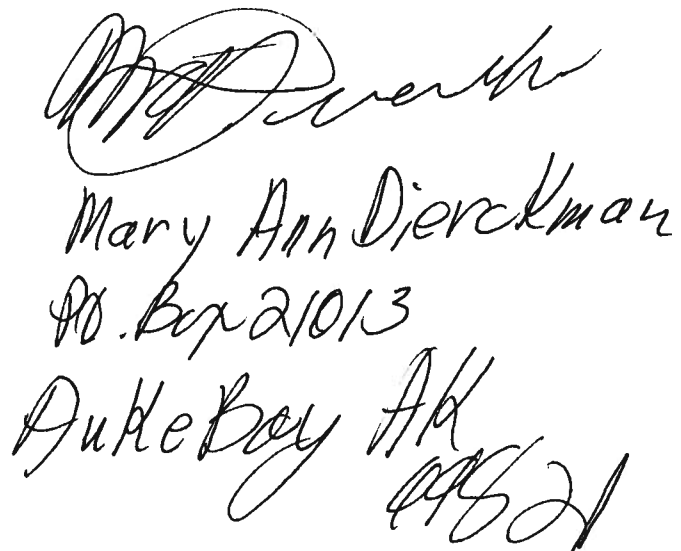 Mary Ann Dierckman
P.O. Box 21013
Auke Bay AK
99821